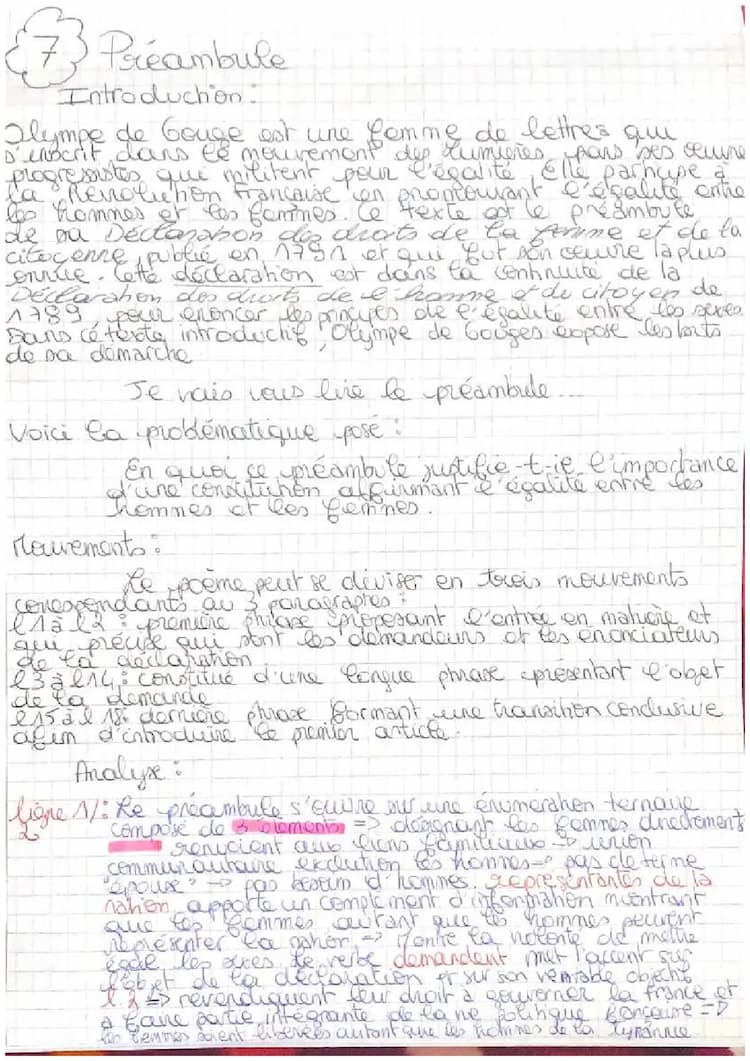 7 Préambule
Introduction :
Olympe de Gouge est une femme de lettres qui
s'inscrit dans le mouvement des Lumières, pars ses œuvre
progressistes qui militent pour l'égalité. Elle participe à
la Révolution française en promouvant l'égalité entre
les hommes et les femmes. Ce texte est le préambule
de sa Déclaration des droits de la femme et de la
citoyenne, publié en 1791 et qui fut son œuvre la plus
connue. Cette déclaration est dans la continuité de la
Déclaration des droits de l'homme et du citoyen de
1789 pour énoncer les principes de l'égalité entre les sexes
Dans ce texte introductif, Olympe de Gouges expose les buts
de sa démarche
Je vais vous lire le préambule ...
Voici la problématique posé :
En quoi ce préambule justifie-t-il l'importance
d'une constitution affirmant l'égalité entre les
hommes et les femmes.
Mouvements :
Le poème peut se diviser en trois mouvements
correspondants au 3 paragraphes :
l1 à l2 : première phrase proposant l'entrée en matière et
qui précise qui sont les demandeurs et les énonciateurs
de la déclaration
l3 à l14 : constitué d'une longue phrase présentant l'objet
de la demande
l15 à l18 : dernière phrase formant une transition conclusive
afin d'introduire le premier article.
Analyse :
ligne 1/2 : Le préambule s'ouvre sur une énumération ternaire
composé de 3 éléments => désignant les femmes directement
renvoient aux liens familiaux -> union
communautaire exclution les hommes -> pas de terme
"épouse" -> pas besoin d'hommes. représentantes de la
nation apporte un complément d'information montrant
que les femmes autant que les hommes peuvent
représenter la nation => montre la volonté de mettre
égale les sexes. Le verbe demandent met l'accent sur
l'objet de la déclaration et sur son véritable objectif
l.2 => revendiquent leur droit à gouverner la France et
à faire partie intégrante de la vie politique française =>
les femmes soient libérées autant que les hommes de la tyrannie.